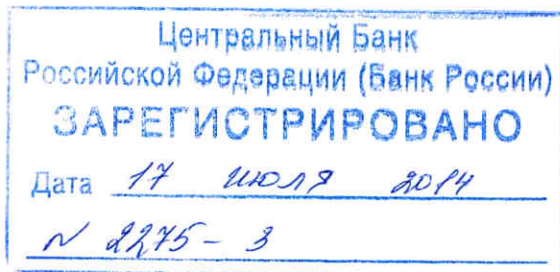 Центральный Банк
Российской Федерации (Банк России)
ЗАРЕГИСТРИРОВАНО
Дата 17 июля 2014
N 2275-3